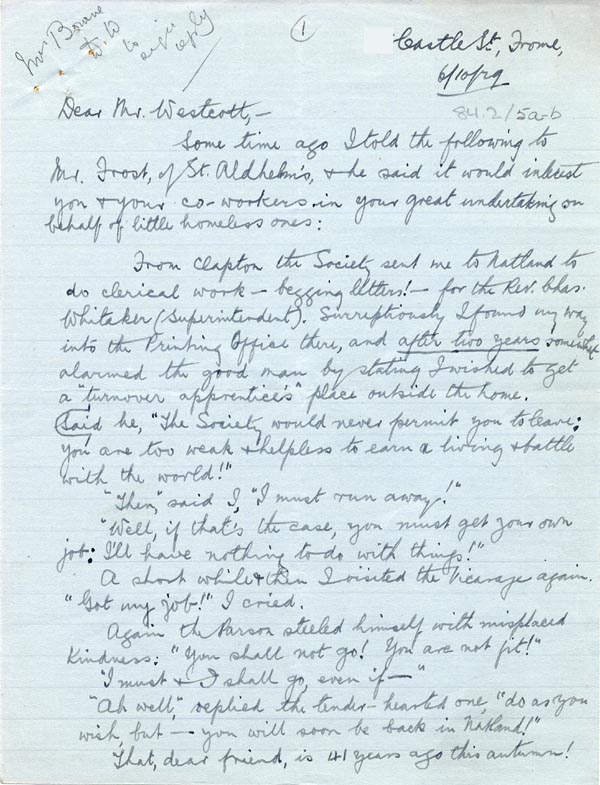 Mrs Bowne
W.W
to sign
reply
1
Castle St., Frome,
6/10/29
84.2/5a-b
Dear Mr. Westcott,—
Some time ago I told the following to
Mr. Frost, of St. Aldhelm's, & he said it would interest
you & your co-workers in your great undertaking on
behalf of little homeless ones:
From Clapton the Society sent me to Natland to
do clerical work — begging letters! — for the Rev. Chas.
Whitaker (Superintendent). Surreptiously I found my way
into the Printing Office there, and after two years somewhat
alarmed the good man by stating I wished to get
a "turnover apprentice's" place outside the home.
Said he, "The Society would never permit you to leave:
you are too weak & helpless to earn a living & battle
with the world!"
"Then," said I, "I must run away!"
"Well, if that's the case, you must get your own
job: I'll have nothing to do with things!"
A short while & then I visited the Vicarage again.
"Got my job!" I cried.
Again the Parson steeled himself with misplaced
Kindness: "You shall not go! You are not fit!"
"I must & I shall go, even if —"
"Ah well," replied the tender-hearted one, "do as you
wish, but — you will soon be back in Natland!"
That, dear friend, is 41 years ago this autumn!